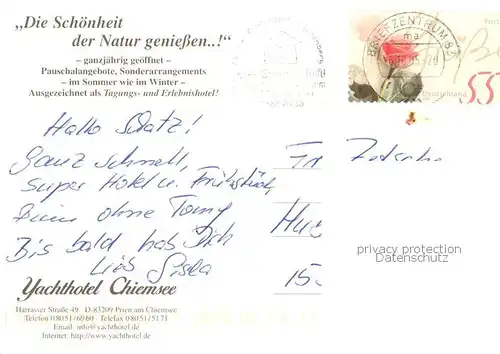 „Die Schönheit
der Natur genießen..!“
– ganzjährig geöffnet –
Pauschalangebote, Sonderarrangements
– im Sommer wie im Winter –
Ausgezeichnet als Tagungs- und Erlebnishotel!
BRIEFZENTRUM 83
Deutschland
55
Hallo Schatz!
Ganz schnell,
super Hotel u. Frühstück,
ohne Tomy
Bis bald hab Dich
lieb
privacy protection
Datenschutz
Yachthotel Chiemsee
Harrasser Straße 49 D-83209 Prien am Chiemsee
Telefon 08051/6960 Telefax 08051/5171
Email: info@yachthotel.de
Internet: http://www.yachthotel.de